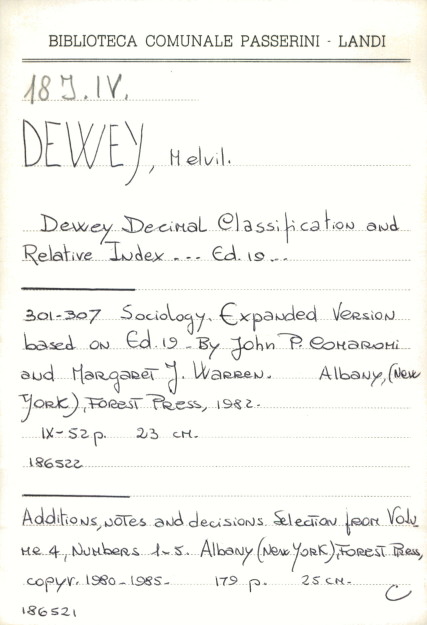 BIBLIOTECA COMUNALE PASSERINI - LANDI
18 J. IV.
DEWEY, Melvil.
Dewey Decimal Classification and
Relative Index --- Ed. 19 --
301-307 Sociology. Expanded Version
based on Ed. 19 - By John P. Comaromi
and Margaret J. Warren. Albany, (New
York), Forest Press, 1982.
IX-52 p. 23 cm.
186522
Additions, notes and decisions. Selection from Volu
me 4, Numbers 1-5. Albany (New York), Forest Press,
copyr. 1980-1985- 179 p. 25 cm-
186521